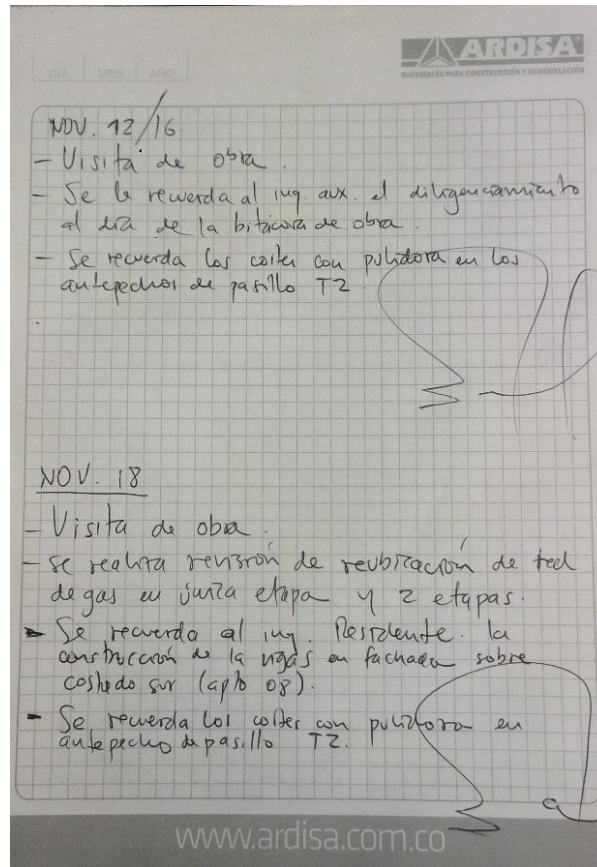 ARDISA
MATERIALES PARA CONSTRUCCIÓN Y REMODELACIÓN
DIA MES AÑO
NOV. 12/16
- Visita de obra.
- Se le recuerda al ing. aux. el diligenciamiento
al dia de la bitácora de obra.
- Se recuerda los cortes con pulidora en los
antepechos de pasillo T2
NOV. 18
- Visita de obra.
- se realiza revisión de reubicación de red
de gas en etapa y 2 etapas.
- Se recuerda al ing. Residente. la
construcción de la vigas en fachada sobre
costado sur (apto 08).
- Se recuerda los cortes con pulidora en
antepecho de pasillo T2.
www.ardisa.com.co